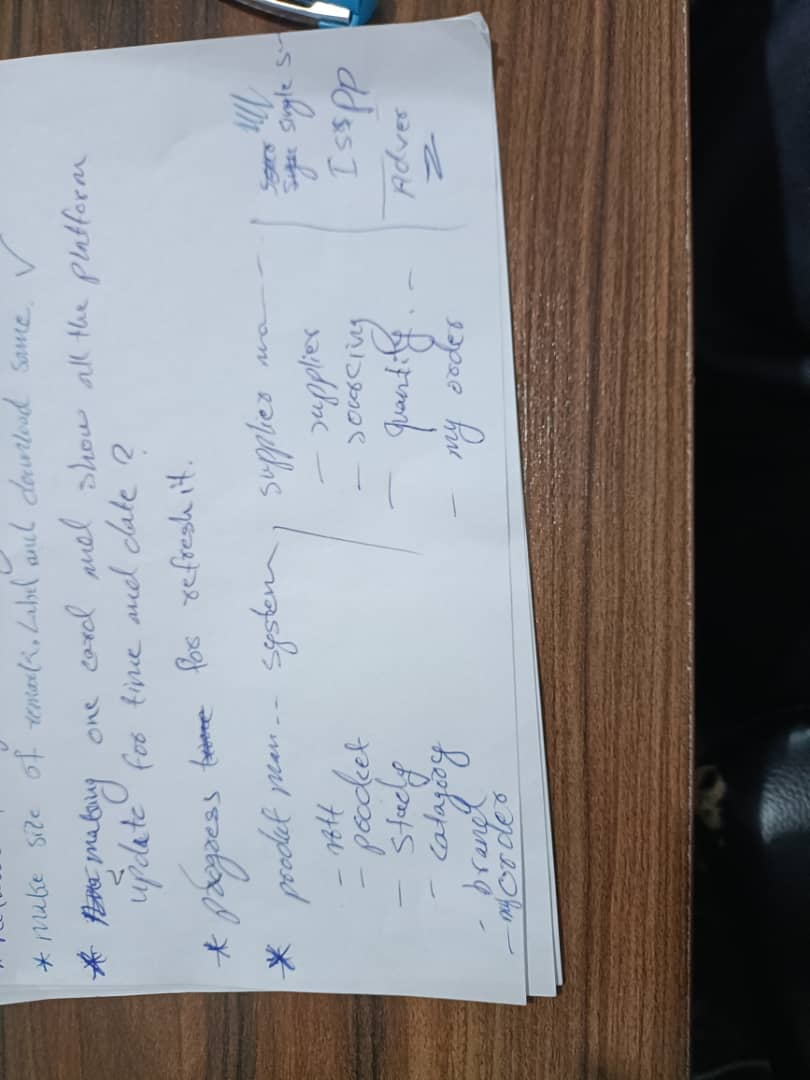 * make size of remark, Label and download same. ✓
* making one card and show all the platform
update for time and date ?
* progress for refresh it.
* product man.. system
-
- product
- study
- catagory
- brand
- my order
supplier ma
- supplier
- sourcing
- quantity. -
- my order
single s
Isspp
Adver